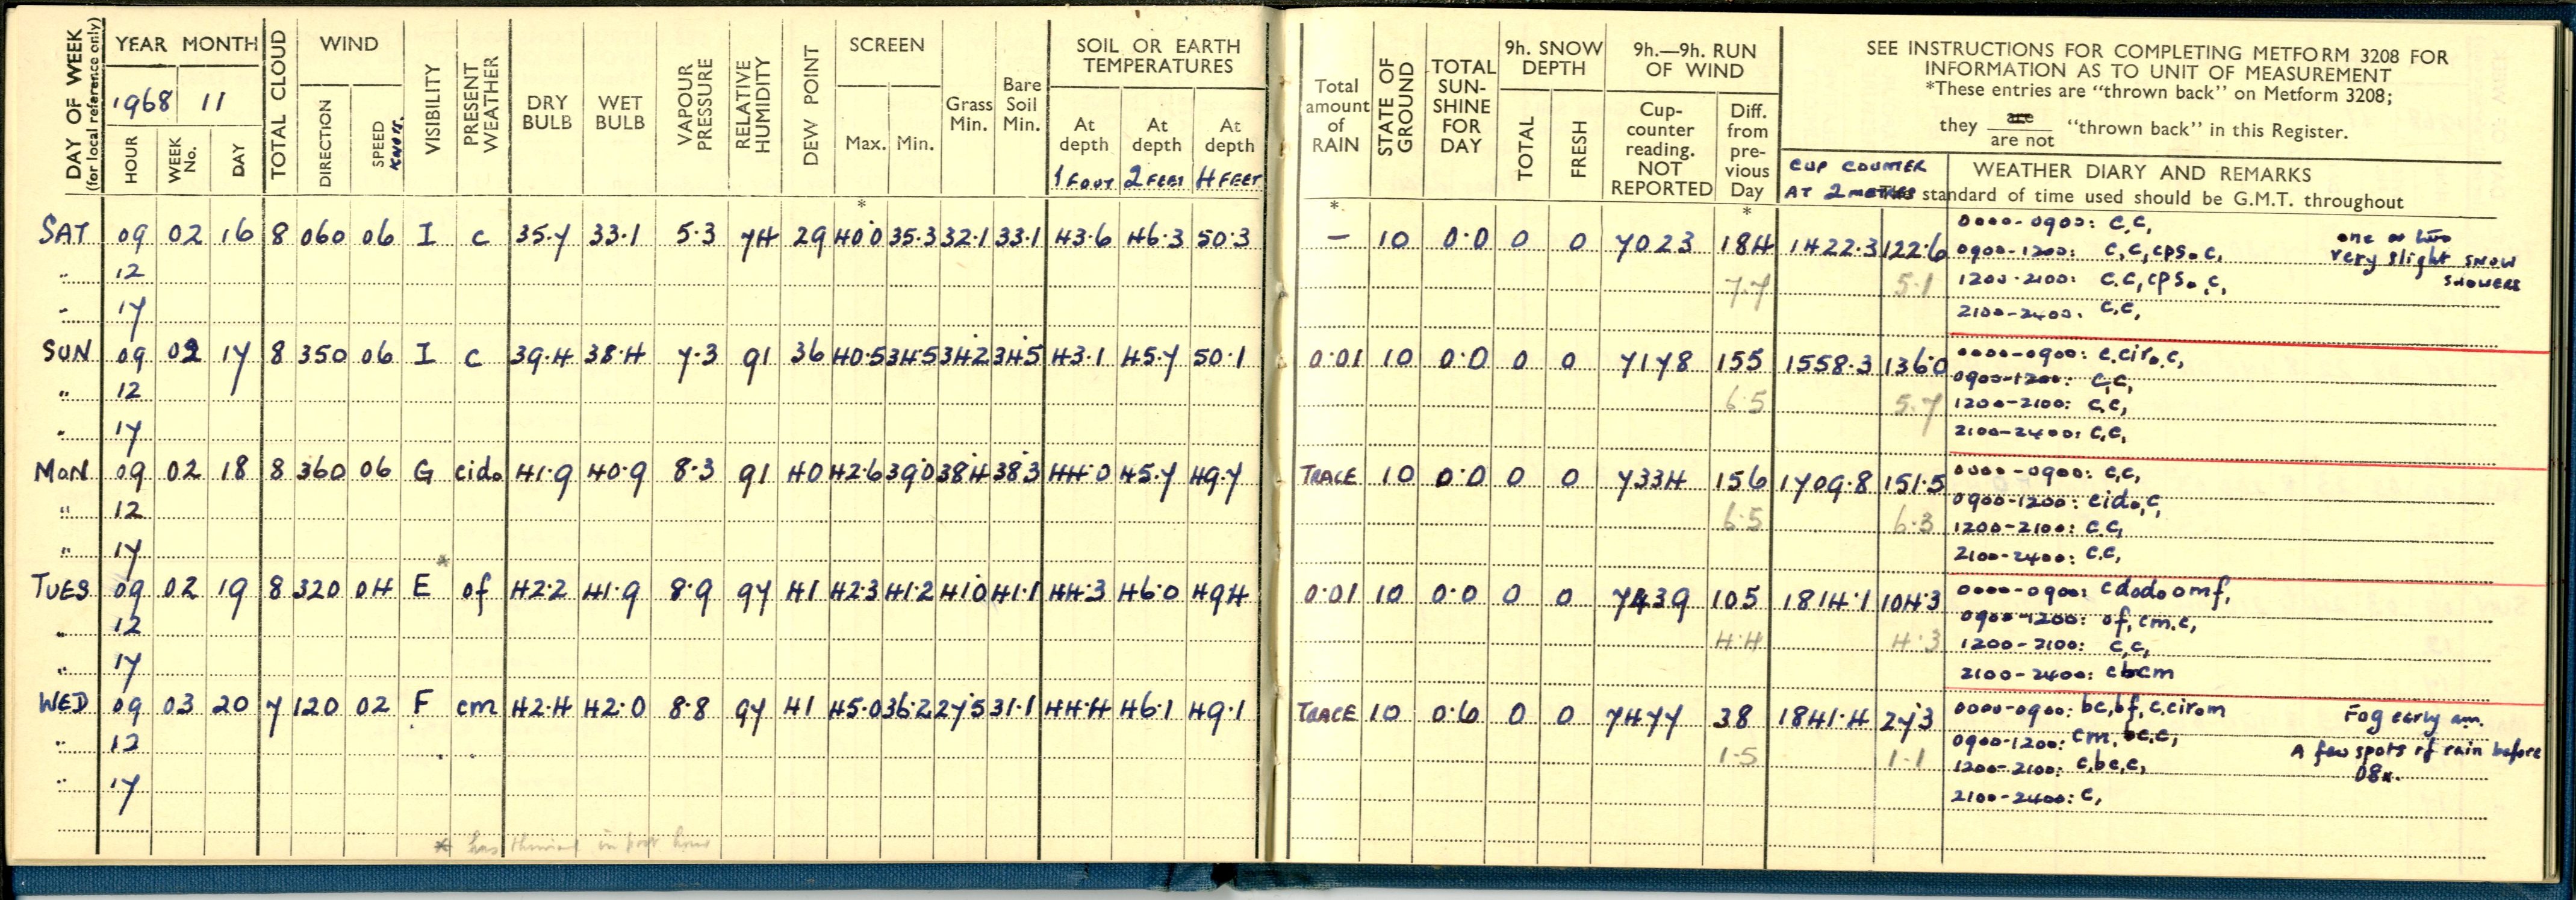 DAY OF WEEK
(for local reference only)
YEAR MONTH
1968 11
HOUR WEEK No. DAY
TOTAL CLOUD
WIND
DIRECTION SPEED KNOTS.
VISIBILITY
PRESENT WEATHER
DRY BULB
WET BULB
VAPOUR PRESSURE
RELATIVE HUMIDITY
DEW POINT
SCREEN
Max. Min.
Grass Min.
Bare Soil Min.
SOIL OR EARTH TEMPERATURES
At depth 1 FOOT At depth 2 FEET At depth 4 FEET
Total amount of RAIN
STATE OF GROUND
TOTAL SUN-SHINE FOR DAY
9h. SNOW DEPTH
TOTAL FRESH
9h.—9h. RUN OF WIND
Cup-counter reading. NOT REPORTED
Diff. from pre-vious Day
SEE INSTRUCTIONS FOR COMPLETING METFORM 3208 FOR
INFORMATION AS TO UNIT OF MEASUREMENT
*These entries are “thrown back” on Metform 3208;
they are
are not “thrown back” in this Register.
CUP COUNTER
AT 2 METRES
WEATHER DIARY AND REMARKS
The standard of time used should be G.M.T. throughout
* * *
SAT 09 02 16 8 060 06 I c 35.7 33.1 5.3 74 29 40.0 35.3 32.1 33.1 43.6 46.3 50.3 – 10 0.0 0 0 7023 184 1422.3 122.6
0000-0900: c,c,
0900-1200: c,c,cps.c, one or two
very slight snow
showers
" 12 7.7 5.1 1200-2100: c.c,cps.,c,
" 17 2100-2400. c,c,
SUN 09 02 17 8 350 06 I c 39.4 38.4 7.3 91 36 40.5 34.5 34.2 34.5 43.1 45.7 50.1 0.01 10 0.0 0 0 7178 155 1558.3 136.0
0000-0900: c.ciro.c,
0900-1200: c,c,
" 12 6.5 5.7 1200-2100: c,c,
" 17 2100-2400: c,c,
MON 09 02 18 8 360 06 G cido 41.9 40.9 8.3 91 40 42.6 39.0 38.4 38.3 44.0 45.7 49.7 TRACE 10 0.0 0 0 7334 156 1709.8 151.5
0000-0900: c,c,
0900-1200: cido,c,
" 12 6.5 6.3 1200-2100: c.c,
" 17 2100-2400: c.c,
TUES 09 02 19 8 320 04 * E of 42.2 41.9 8.9 97 41 42.3 41.2 41.0 41.1 44.3 46.0 49.4 0.01 10 0.0 0 0 7439 105 1814.1 104.3
0000-0900: cdodo omf,
0900-1200: of, cm.c,
" 12 4.4 4.3 1200-2100: c,c,
" 17 2100-2400: cbcm
WED 09 03 20 7 120 02 F cm 42.4 42.0 8.8 97 41 45.0 36.2 27.5 31.1 44.4 46.1 49.1 TRACE 10 0.6 0 0 7477 38 1841.4 27.3
0000-0900: bc,bf, c.cirom Fog early am.
0900-1200: cm, bc.c, A few spots of rain before
08
" 12 1.5 1.1 1200-2100: c,bc,c,
" 17 2100-2400: c,
* in